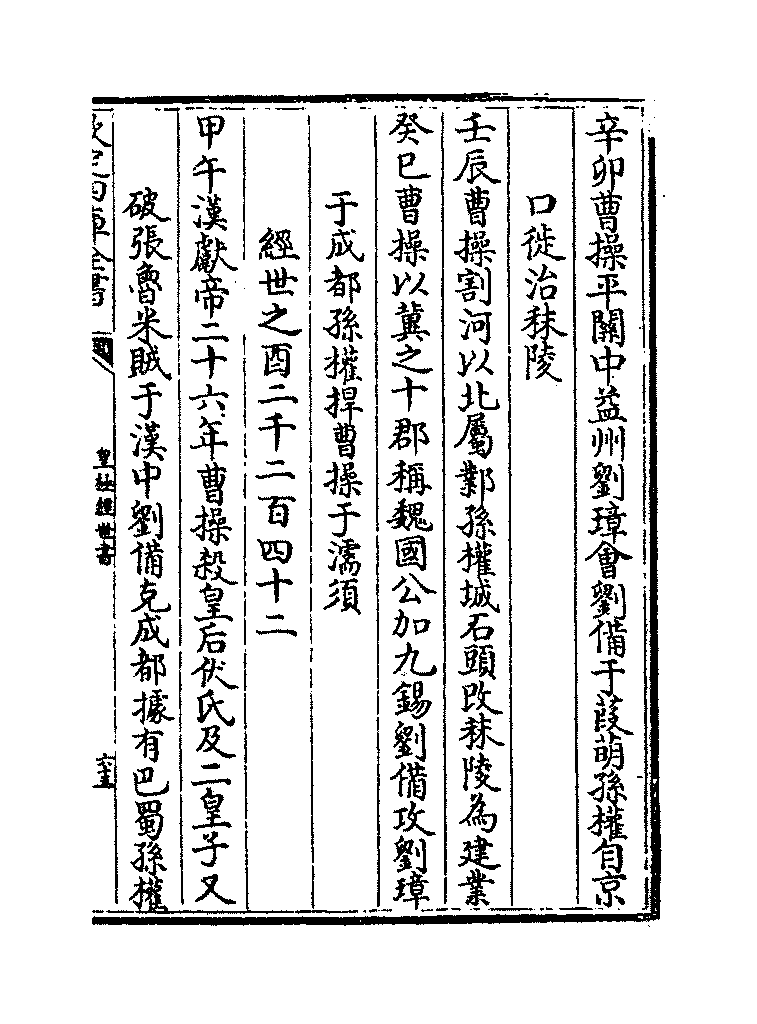 辛卯曹操平關中益州劉璋會劉備于葭萌孫權自京
口徙治秣陵
壬辰曹操割河以北屬鄴孫權城石頭改秣陵為建業
癸巳曹操以冀之十郡稱魏國公加九錫劉備攻劉璋
于成都孫權捍曹操于濡須
經世之酉二千二百四十二
甲午漢獻帝二十六年曹操殺皇后伏氏及二皇子又
破張魯米賊于漢中劉備克成都據有巴蜀孫權
欽定四庫全書
皇極經世書
六五